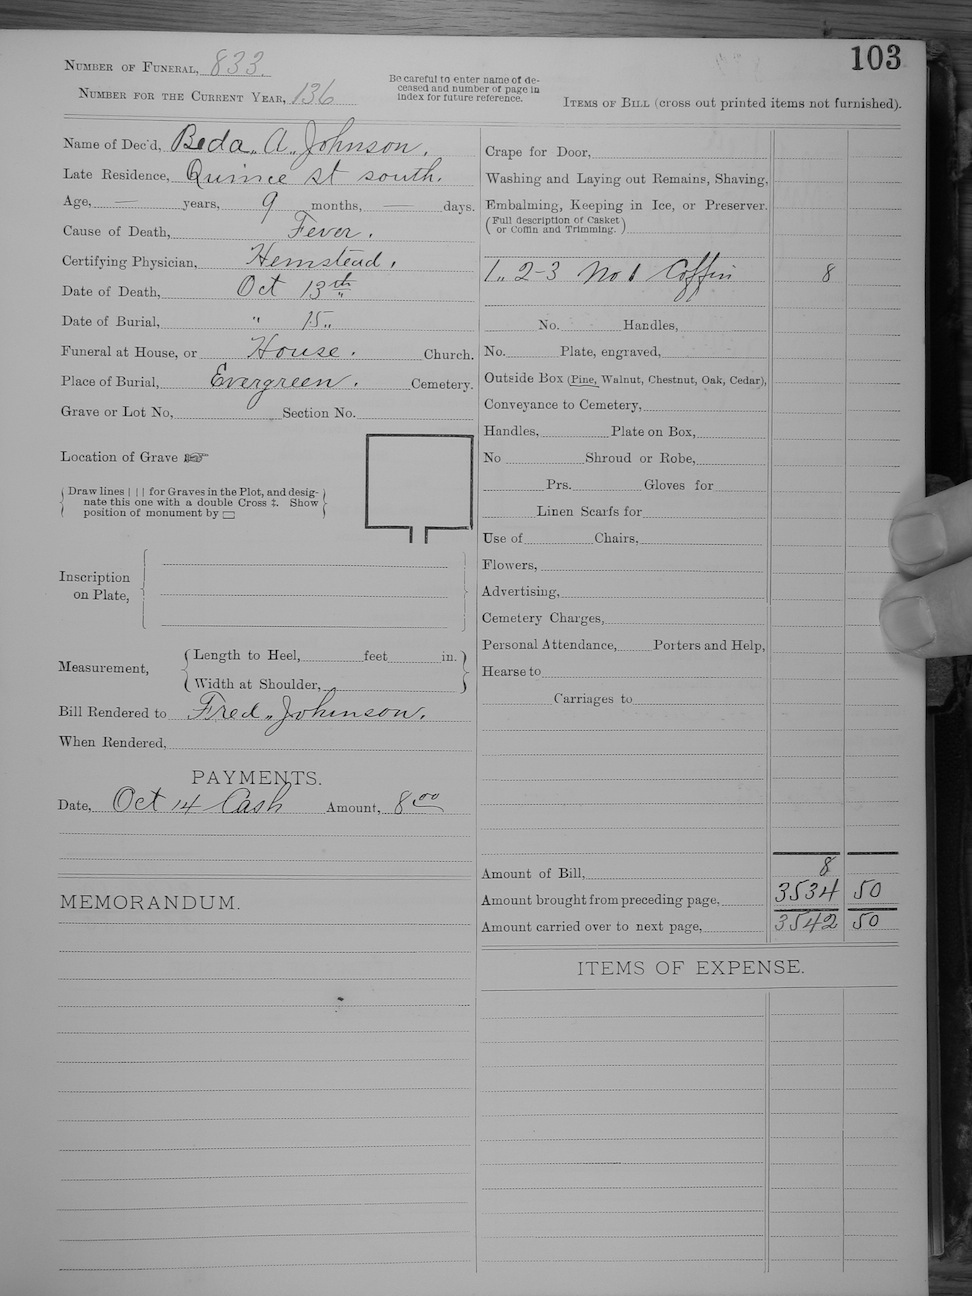 103
NUMBER OF FUNERAL, 833.
NUMBER FOR THE CURRENT YEAR, 136
Be careful to enter name of de-
ceased and number of page in
index for future reference.
ITEMS OF BILL (cross out printed items not furnished).
Name of Dec'd, Beda. A. Johnson.
Late Residence, Quince st south.
Age, — years, 9 months, — days.
Cause of Death, Fever.
Certifying Physician, Hemstead.
Date of Death, Oct 13th
Date of Burial, " 15.
Funeral at House, or House. Church.
Place of Burial, Evergreen. Cemetery.
Grave or Lot No, Section No.
Location of Grave ☞
(Draw lines | | | for Graves in the Plot, and desig-
nate this one with a double Cross ‡. Show
position of monument by ▭)
Inscription
on Plate,
Measurement,
Length to Heel, feet in.
Width at Shoulder,
Bill Rendered to Fred. Johnson.
When Rendered,
PAYMENTS.
Date, Oct 14 Cash Amount, 8 00
MEMORANDUM.
Crape for Door,
Washing and Laying out Remains, Shaving,
Embalming, Keeping in Ice, or Preserver.
(Full description of Casket
or Coffin and Trimming.)
1.. 2-3 No 1 Coffin 8
No. Handles,
No. Plate, engraved,
Outside Box (Pine, Walnut, Chestnut, Oak, Cedar),
Conveyance to Cemetery,
Handles, Plate on Box,
No Shroud or Robe,
Prs. Gloves for
Linen Scarfs for
Use of Chairs,
Flowers,
Advertising,
Cemetery Charges,
Personal Attendance, Porters and Help,
Hearse to
Carriages to
Amount of Bill, 8
Amount brought from preceding page, 3534 50
Amount carried over to next page, 3542 50
ITEMS OF EXPENSE.